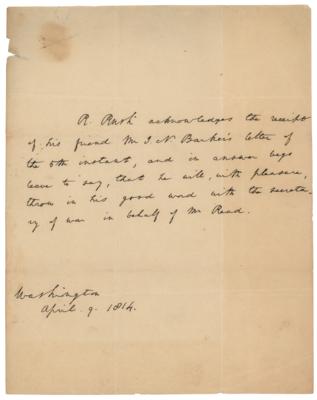 R. Rush acknowledges the receipt
of his friend Mr J. N. Barker's letter of
the 5th instant, and in answer begs
leave to say, that he will, with pleasure,
throw in his good word with the secreta-
ry of war in behalf of Mr Read.
Washington
April. 9. 1814.